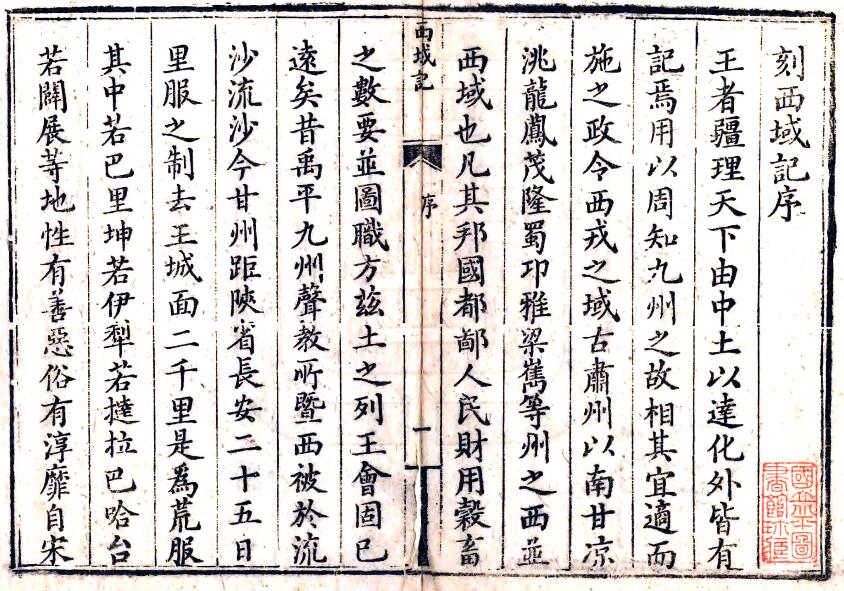 刻西域記序
王者疆理天下由中土以達化外皆有
記焉用以周知九州之故相其宜適而
施之政令西戎之域古肅州以南甘凉
洮龍鳳茂隆蜀卭雅梁嶲等州之西並
西域也凡其邦國都鄙人民財用穀畜
西域記
序
一
之數要並圖職方兹土之列王會固已
遠矣昔禹平九州聲教所暨西被於流
沙流沙今甘州距陝省長安二十五日
里服之制去王城面二千里是爲荒服
其中若巴里坤若伊犁若撻拉巴哈台
若闢展等地性有善惡俗有淳靡自宋